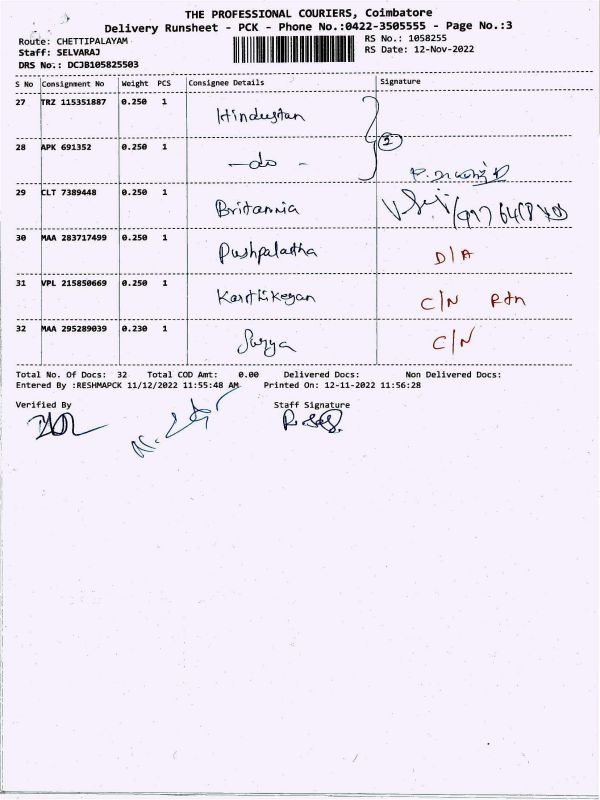 THE PROFESSIONAL COURIERS, Coimbatore
Delivery Runsheet - PCK - Phone No.:0422-3505555 - Page No.:3
Route: CHETTIPALAYAM RS No.: 1058255
Staff: SELVARAJ RS Date: 12-Nov-2022
DRS No.: DCJB105825503
S No Consignment No Weight PCS Consignee Details Signature
27 TRZ 115351887 0.250 1 Hindustan
28 APK 691352 0.250 1 -do- 2
29 CLT 7389448 0.250 1 Britannia
30 MAA 283717499 0.250 1 Pushpalatha D/A
31 VPL 215850669 0.250 1 Karthikeyan C/N Rtn
32 MAA 295289039 0.230 1 Surya C/N
Total No. Of Docs: 32 Total COD Amt: 0.00 Delivered Docs: Non Delivered Docs:
Entered By :RESHMAPCK 11/12/2022 11:55:48 AM Printed On: 12-11-2022 11:56:28
Verified By Staff Signature